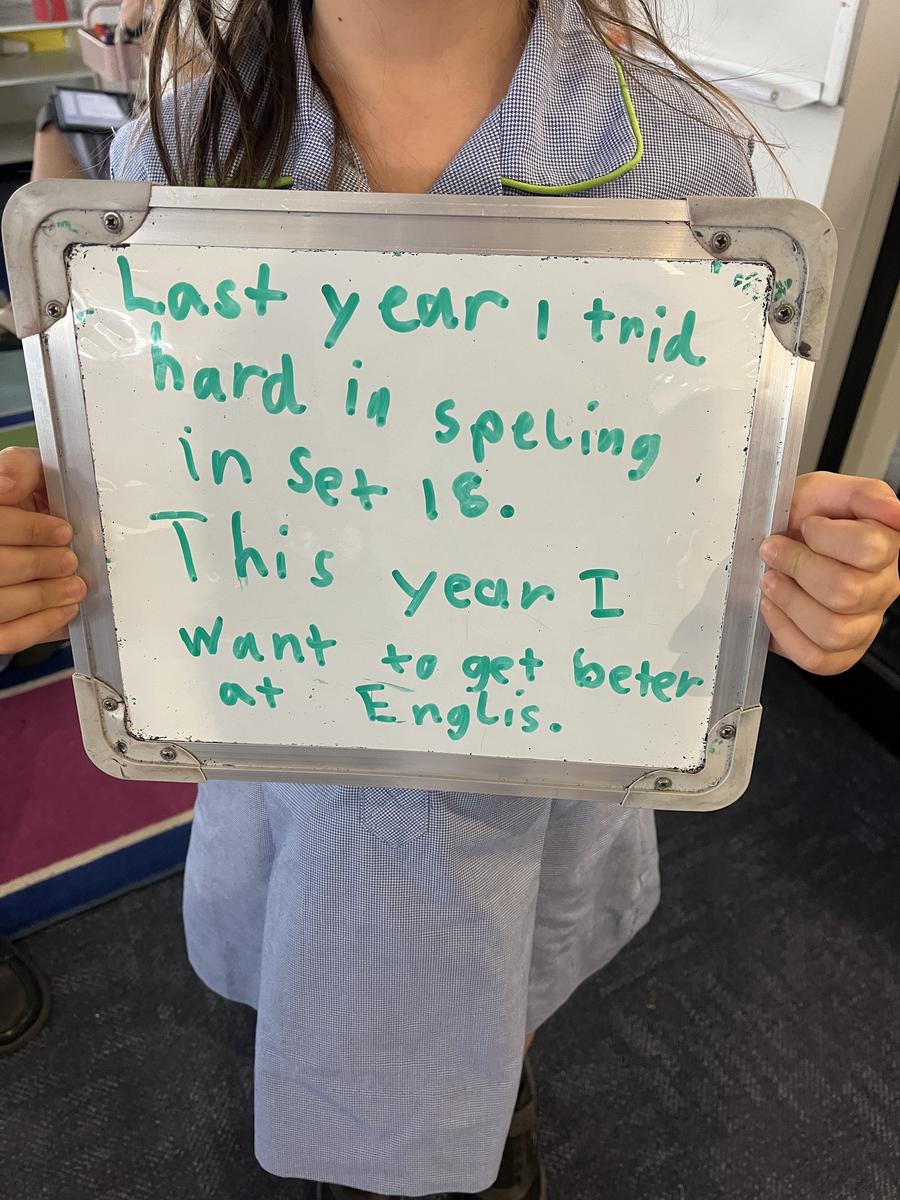 Last year I trid
hard in speling
in set 18.
This year I
want to get beter
at Englis.